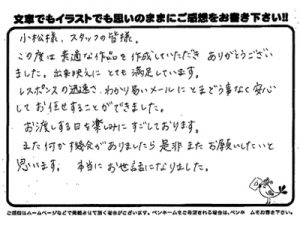 文章でもイラストでも思いのままにご感想をお書き下さい!!
小松様、スタッフの皆様。
この度は素適な作品を作成していただき ありがとうござい
ました。出来映えに とても満足しています。
レスポンスの迅速さ、わかり易いメールに とまどう事なく安心
して お任せすることができました。
お渡しする日を楽しみに すごしております。
また何か機会がありましたら是非 また お願いしたいと
思います。 本当に お世話になりました。
ご感想はホームページなどで掲載させて頂く場合がございます。ペンネームをご希望される場合は、ペンネームをお書き下さい。